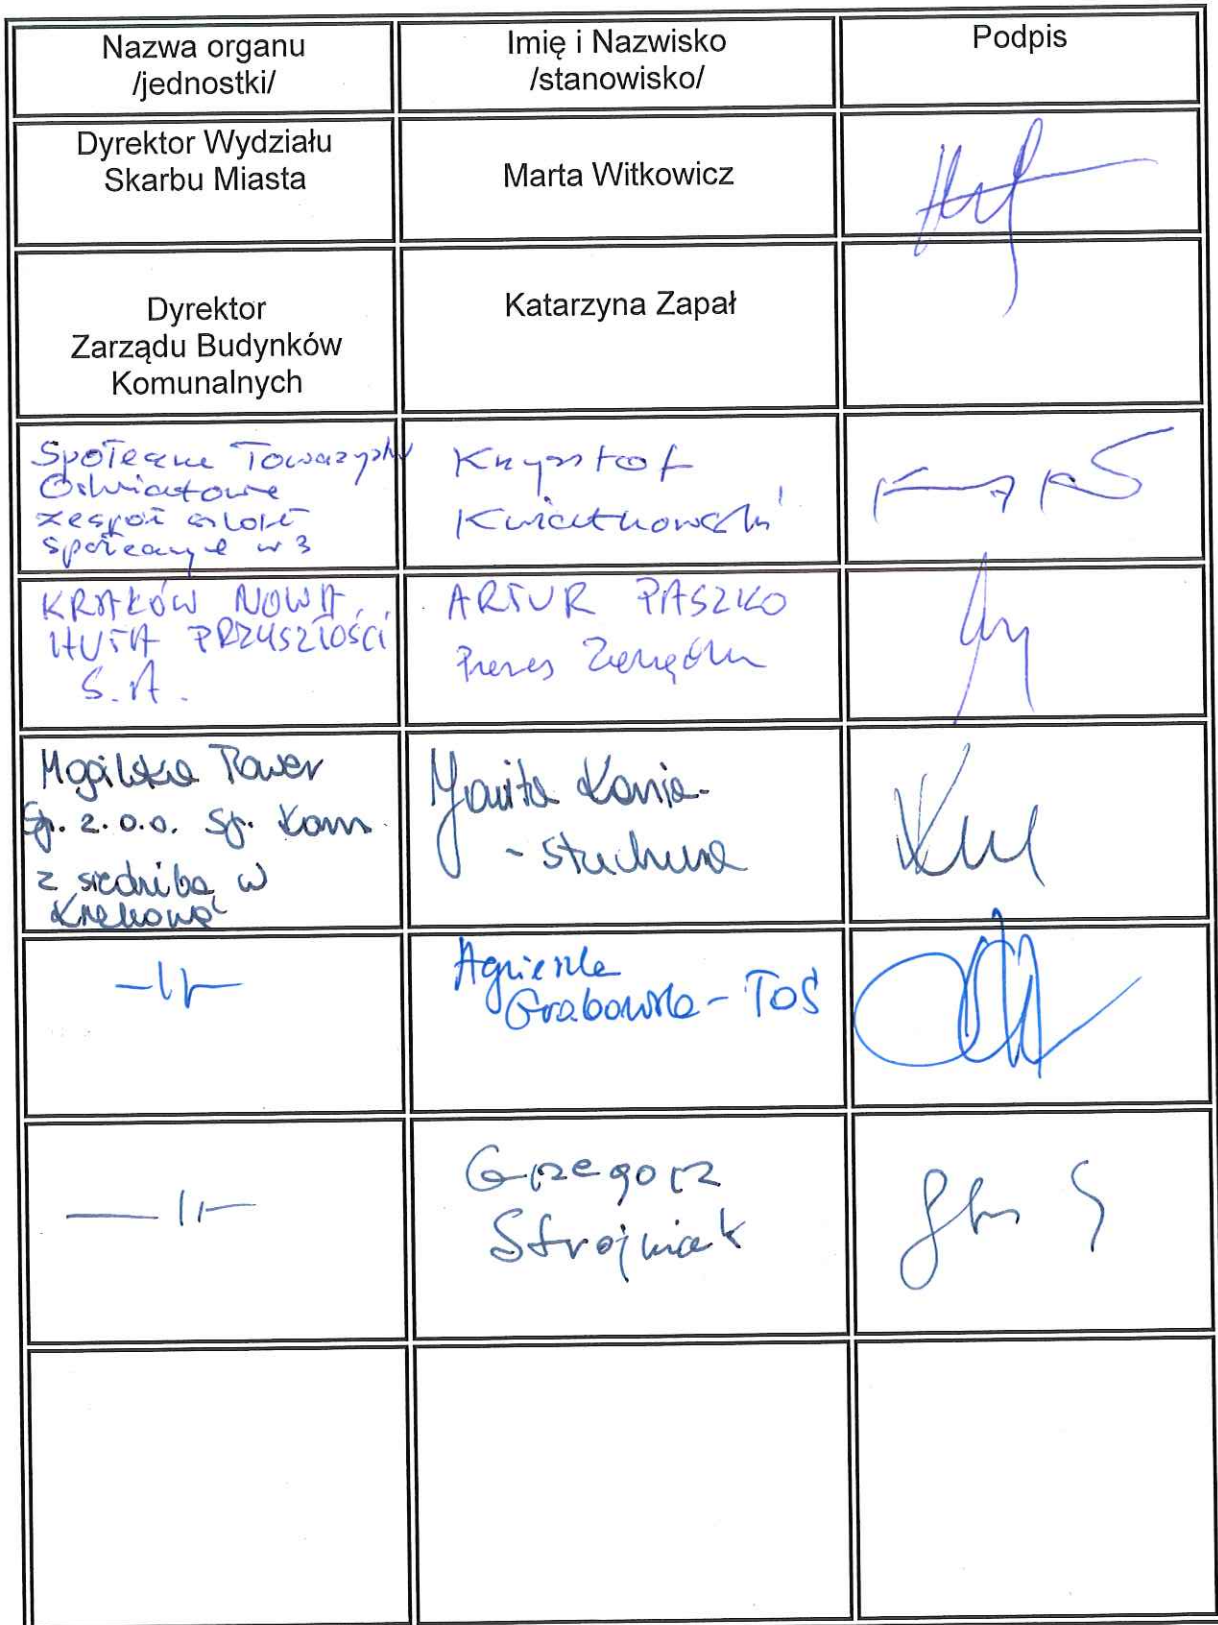 Nazwa organu
/jednostki/
Imię i Nazwisko
/stanowisko/
Podpis
Dyrektor Wydziału
Skarbu Miasta
Marta Witkowicz
Dyrektor
Zarządu Budynków
Komunalnych
Katarzyna Zapał
Społeczne Towarzystwo
Oświatowe
zespół szkół
społecznych nr 3
Krzysztof
Kwiatkowski
KRAKÓW NOWA
HUTA PRZYSZŁOŚCI
S.A.
ARTUR PASZKO
Prezes Zarządu
Mogilska Tower
Sp. z.o.o. Sp. Kom
z siedzibą w
Krakowie
Kania-
-Stachura
-||-
Agnieszka
Grabowska-Toś
-||-
Grzegorz
Strojniak